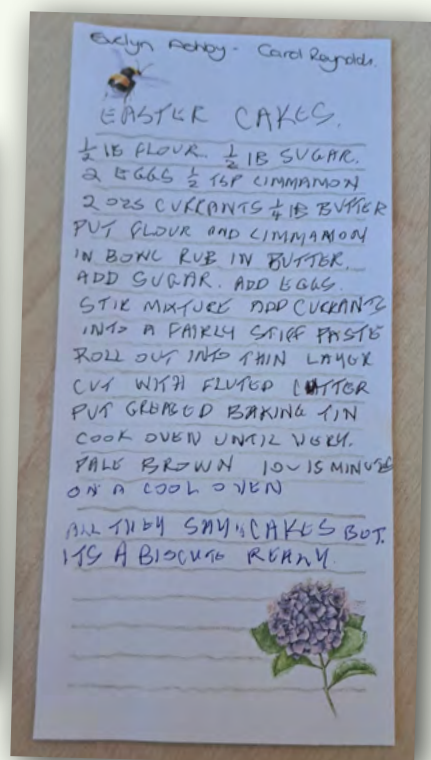 Evelyn Ashby - Carol Reynolds.
EASTER CAKES.
½ lB FLOUR. ½ lB SUGAR.
2 EGGS ½ TSP CIMMAMON
2 OZS CURRANTS ¼ lB BUTTER
PUT FLOUR AND CIMMAMON
IN BOWL RUB IN BUTTER.
ADD SUGAR. ADD EGGS.
STIR MIXTURE ADD CURRANTS
INTO A FAIRLY STIFF PASTE
ROLL OUT INTO THIN LAYER
CUT WITH FLUTED CUTTER
PUT GREASED BAKING TIN
COOK OVEN UNTIL VERY.
PALE BROWN 10-15 MINUTE
ON A COOL OVEN
ALL THEY SAY IS CAKES BUT.
ITS A BISCUTE REALLY.